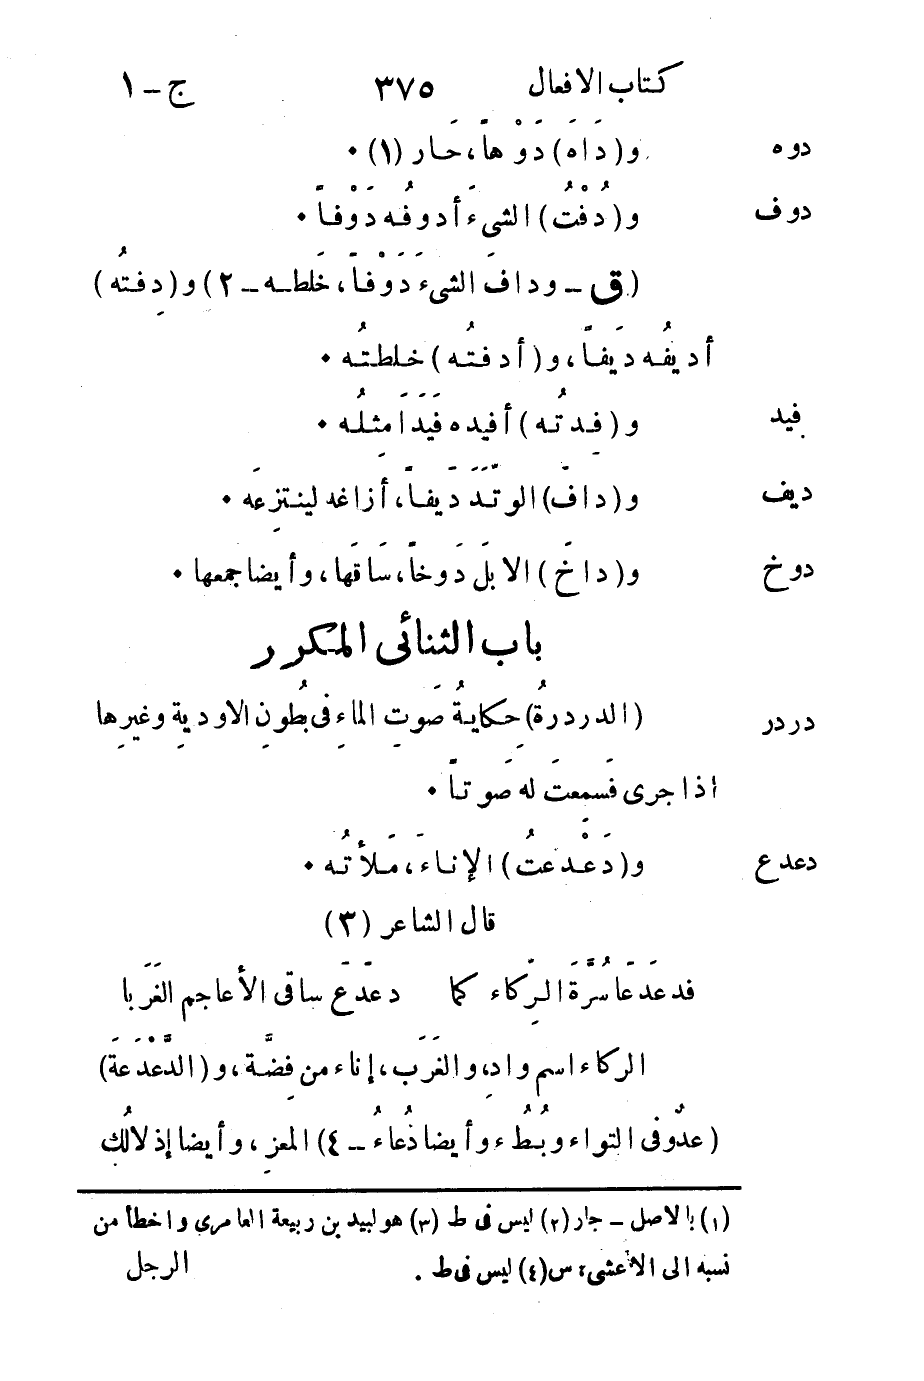 كتاب الافعال ٣٧٥ ج – ١
دوه و(دَاهَ) دَوْهاً، حَار (١) •
دوف و(دُفْتُ) الشيءَ أدوفُه دَوْفاً •
(ق – وداف الشيءَ دَوْفاً، خَلطه – ٢) و(دِفتُه)
أديفُه دَيفاً، و(أدفتُه) خلطتُه •
فيد و(فِدتُه) أفيده فَيَدَاً مثلُه •
ديف و(دافَ) الوَتَدَ دَيفاً، أزاغه لينتزِعَه •
دوخ و(داخَ) الابلَ دَوخاً، سَاقَها، وأيضا جمعها •
باب الثنائى المكرر
دردر (الدردرةُ) حِكايةُ صَوتِ الماءِ فى بُطُونِ الاوديةِ وغيرِها
اذا جرى فَسمِعتَ له صَوتاً •
دعدع و(دَعْدَعتُ) الإناءَ، مَلأتُه •
قال الشاعر (٣)
فدعدعَا سُرَّةَ الرِّكاء كما دعدَعَ ساقى الأعاجم الغَرَبا
الركاء اسم وادٍ، والغَرَب، إناء من فِضَّة، و(الدَّعْدَعَة)
(عدوٌ فى التواء وبُطُء وأيضا دُعاءُ – ٤) المعزِ، وأيضا إذلالُك
(١) بالاصل – جار (٢) ليس فى ط (٣) هو لبيد بن ربيعة العامرى واخطأ من
نسبه الى الاعشى، س (٤) ليس فى ط . الرجل